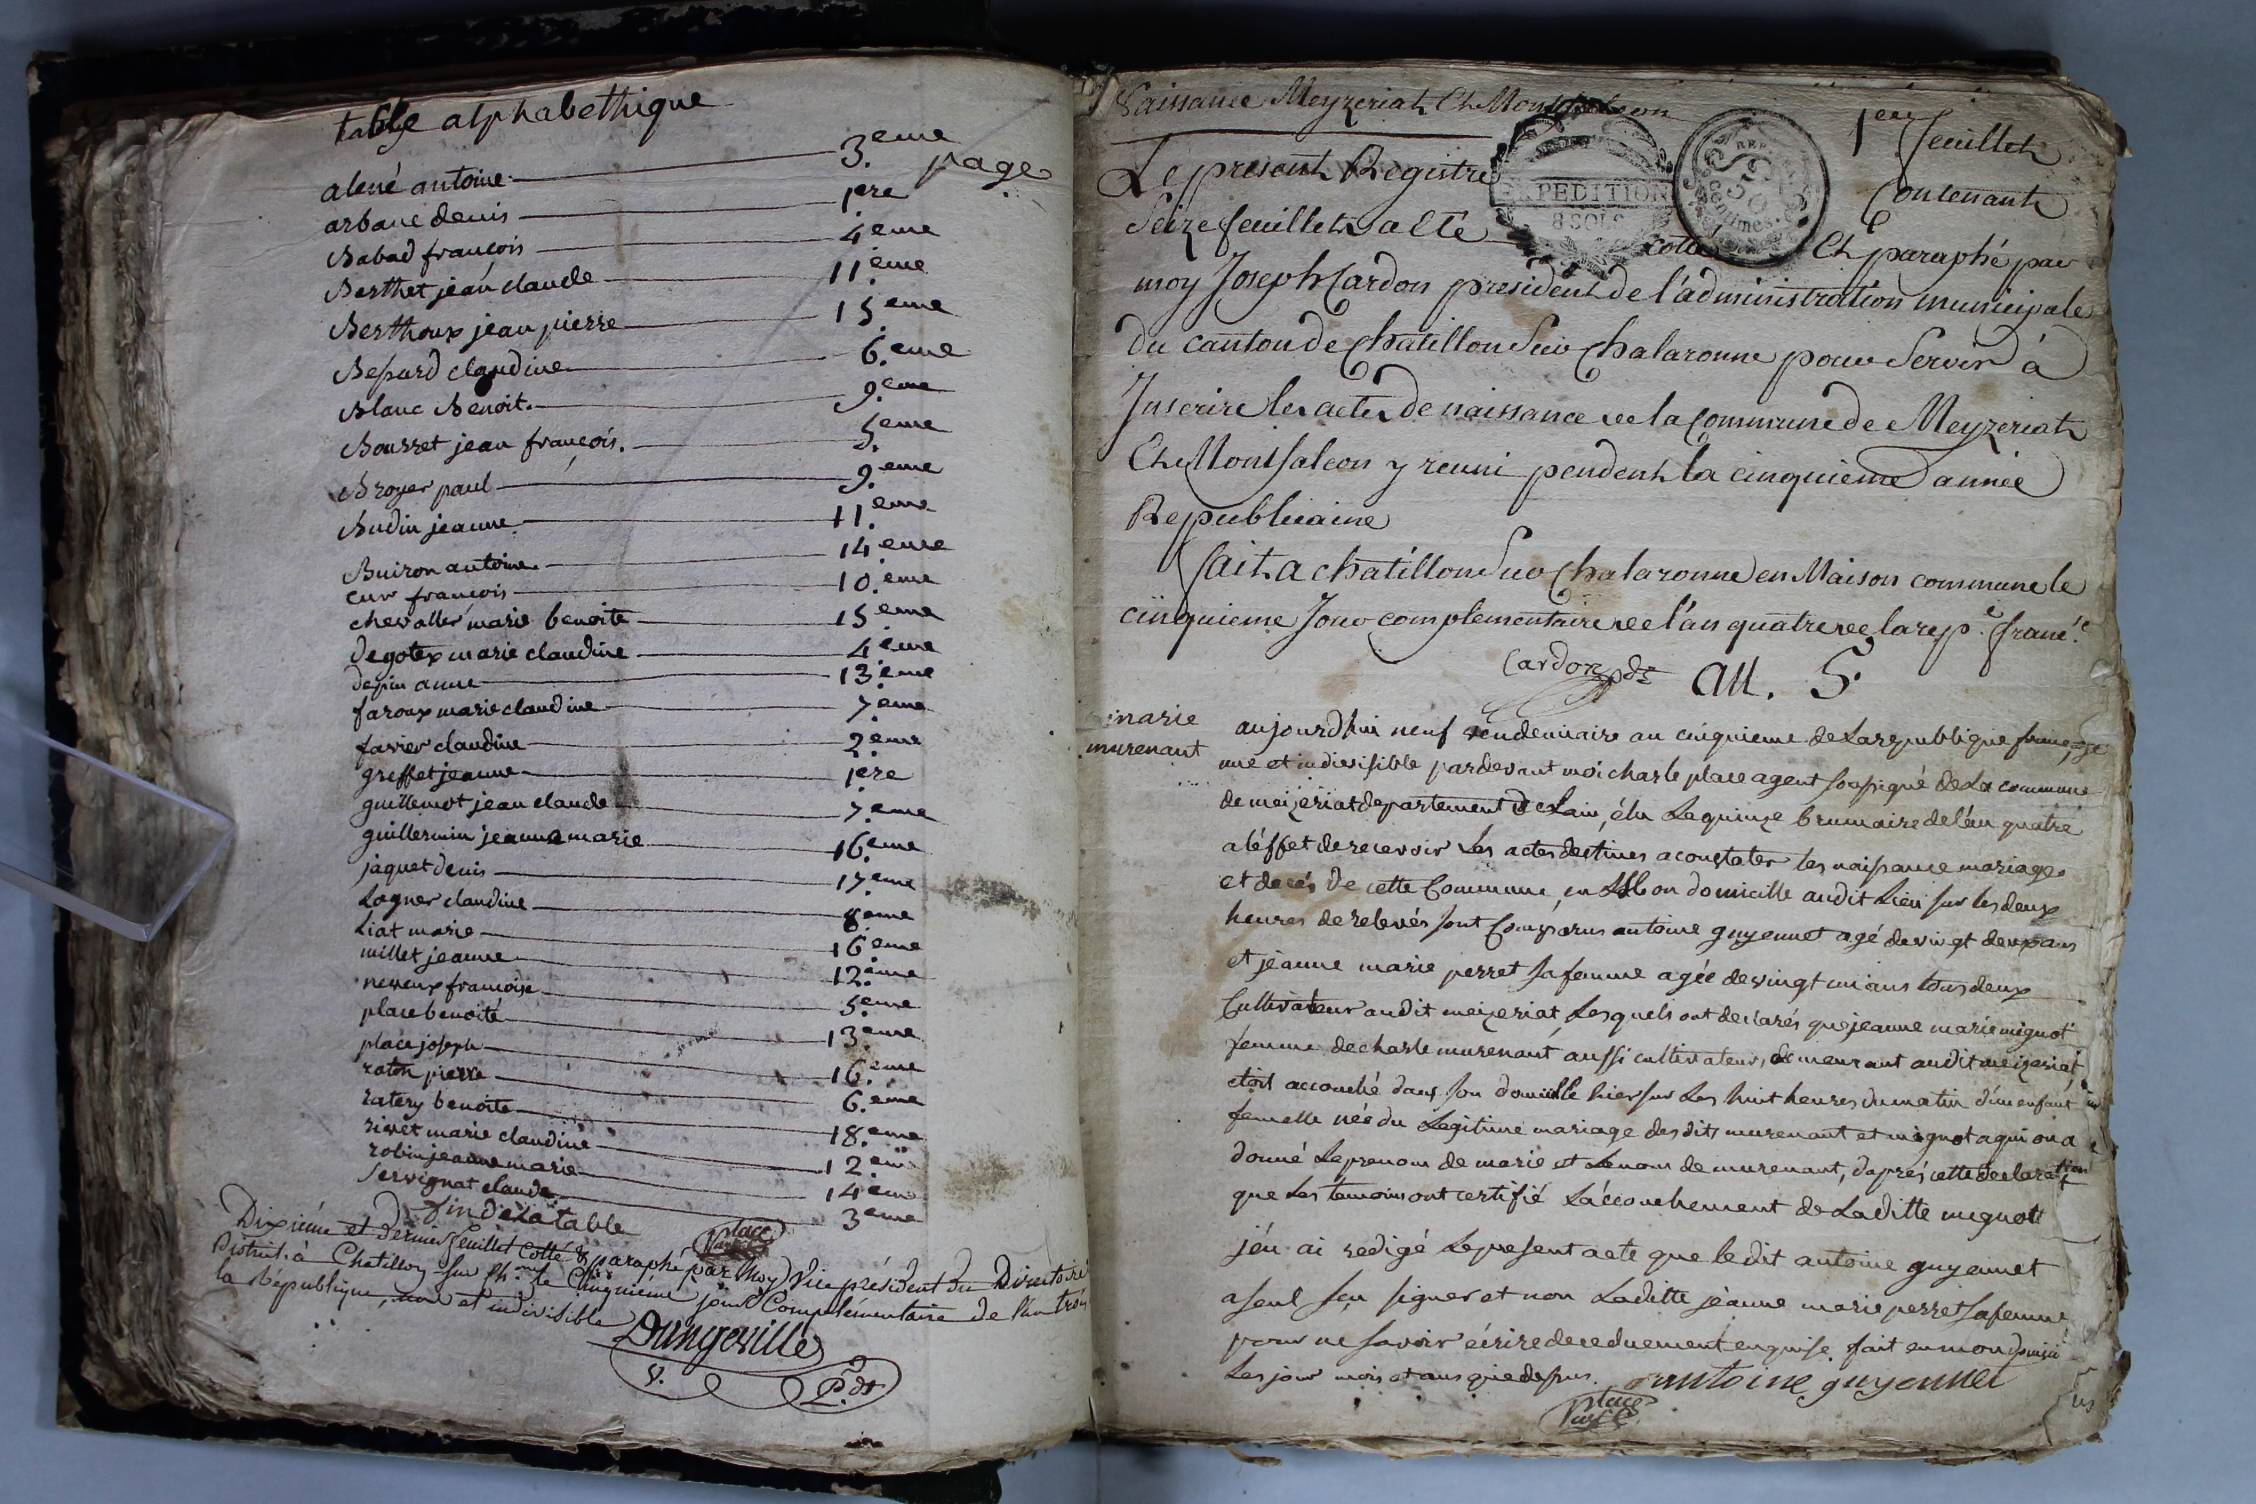 table alphabethique
alené antoine 3.eme page
arbane denis 1.ere
Babad françois 4.eme
Berthet jean claude 11.eme
Berthoux jean pierre 15.eme
Bepard claudine 6.eme
Blanc Benoit. 9.eme
Bousset jean françois. 5.eme
Broyer paul 9.eme
Budin jeanne 11.eme
Buiron antoine 14.eme
cur françois 10.eme
chevallier marie benoite 15.eme
degotex marie claudine 4.eme
depin anne 13.eme
faroux marie claudine 7.eme
favier claudine 2.eme
greffet jeanne 1.ere
guillemot jean claude 7.eme
guillermin jeanne marie 16.eme
jaquet denis 17.eme
Lagner claudine 8.eme
Liat marie 16.eme
millet jeanne 12.eme
neveux françoise 5.eme
place benoite 13.eme
place joseph 16.eme
raton pierre 6.eme
ratery benoite 18.eme
rivet marie claudine 12.eme
robin jeanne marie 14.eme
Servignat claude 3.eme
fin de la table
Place
Dixiéme et dernier feuillet Cotté & paraphé par Moy Vice président du Directoire
District à Chatillon sur Ch.onne le Cinquiéme jour Complémentaire de l'an trois
la République, une et indivisible
Dangeville
V. P.dt
Naissance Meyzeriat Et Montfalcon
1er feuillet
Le present Registre Contenant
EXPEDITION
8 SOLS
REP
50
centimes
Seize feuillets a été cotté Et paraphé par
moy Joseph Cardon president de l'administration municipale
du canton de Chatillon Sur Chalaronne pour Servir à
Inscrire les actes de naissance de la Commune de Meyzeriat
Et Montfalcon y reuni pendent la cinquieme année
Republicaine
fait a chatillon Sur Chalaronne en Maison commune le
cinquieme Jour complementaire de l'an quatre de la rep.e franc.e
Cardon pdt an. 5.
marie
murenant
aujourdhui neuf vendemiaire an cinquieme de La republique françoise
une et indivisible pardevant moi charle place agent soussigné de La commune
de meizeriat departement de Lain, élu Le quinze brumaire de l'an quatre
a l'éffet de recevoir Les actes destines a constater les naissance mariage
et decés de cette Commune, en domicille audit Lieu sur les deux
heures de relevés sont Comparus antoine guyennet agé de vingt deux ans
et jeanne marie perret sa femme agée de vingt un ans tous deux
Cultivateur audit meizeriat, Lesquels ont declarés que jeanne marie mignot
femme de charle murenant aussi cultivateur, demeurant audit meizeriat
etoit accouché dans son domicille hier sur Les huit heures du matin d'un enfant
femelle née du Legitime mariage des dits murenant et mignot a qui on a
donné Le prenom de marie et Le nom de murenant, daprés cette declaration
que Les temoins ont certifié L'accouchement de Laditte mignot
j'en ai redigé Le present acte que le dit antoine guyennet
a seul sçu signer et non Laditte jeanne marie perret sa femme
pour ne savoir écrire de ce duement enquise. fait en mon domicile
Les jour mois et ans que dessus. antoine guyennet
Place